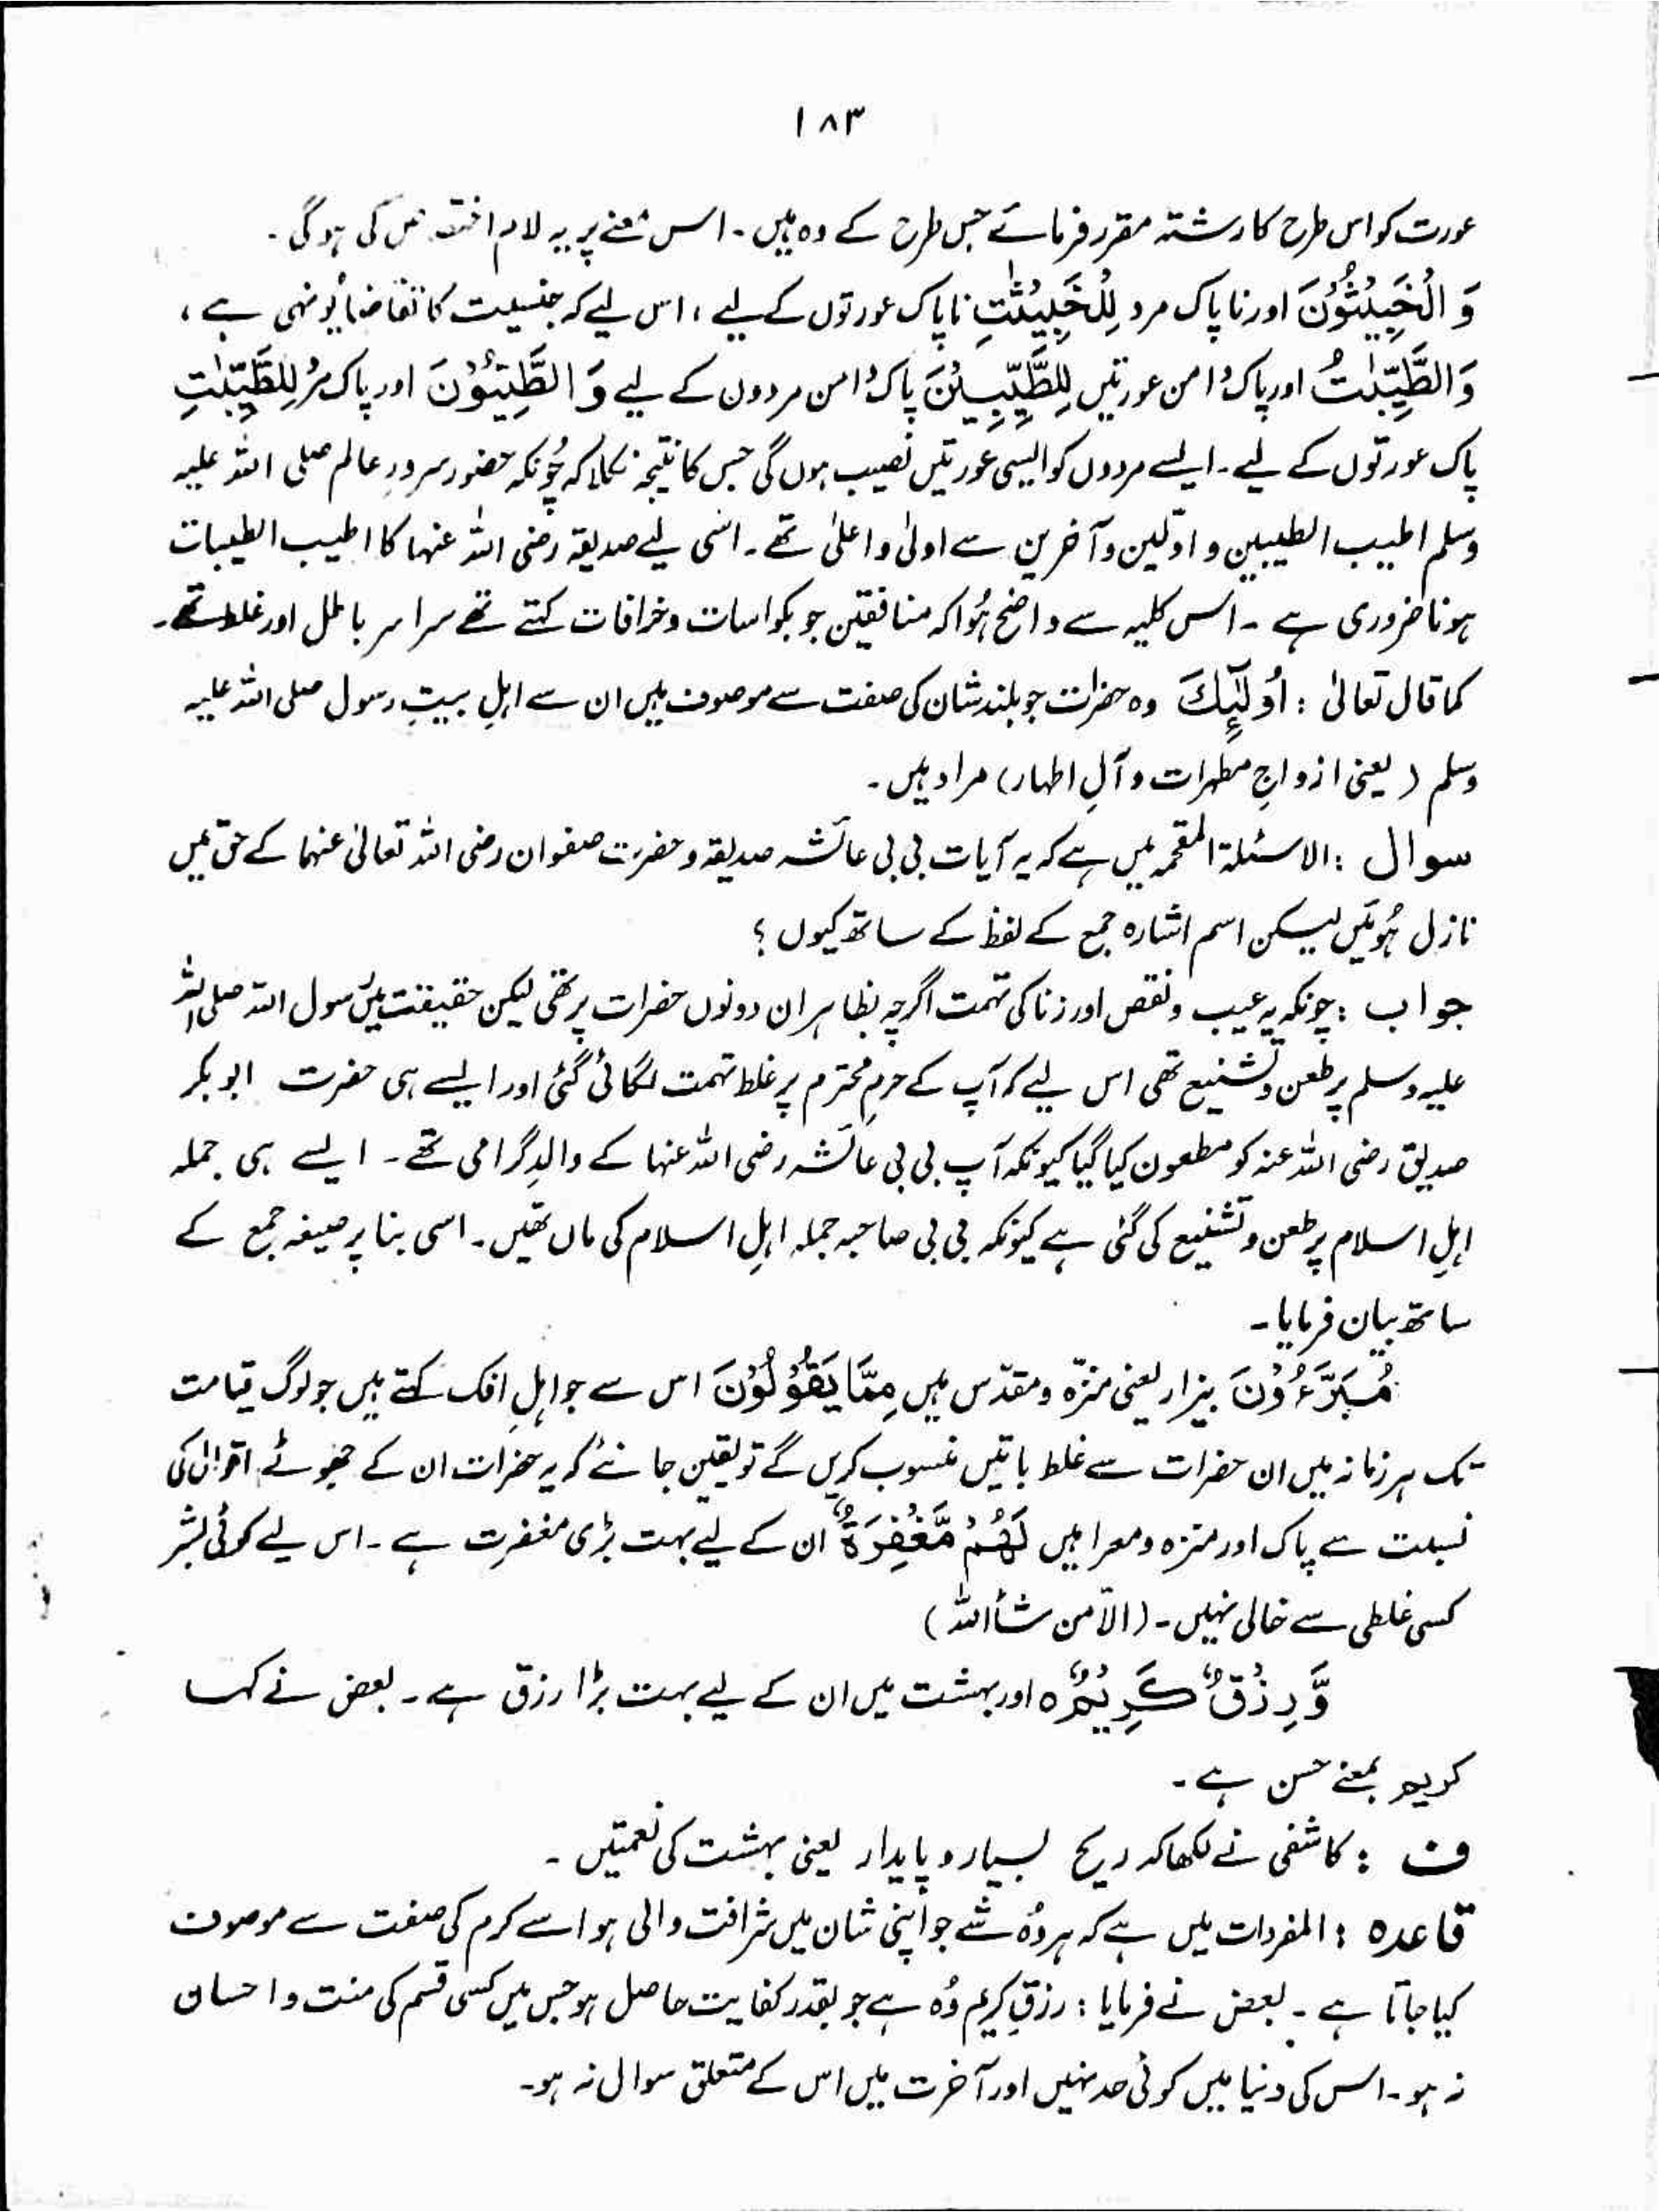 ۱۸۳
عورت کو اس طرح کا رشتہ مقرر فرمائے جس طرح کے وہ ہیں۔ اس معنے پر یہ لام اختصاص کی ہو گی۔
وَ الْخَبِیْثُوْنَ اور ناپاک مرد لِلْخَبِیْثٰتِ ناپاک عورتوں کے لیے ، اس لیے کہ جنسیت کا تقاضا یُونہی ہے ،
وَالطَّیِّبٰتُ اور پاک دامن عورتیں لِلطَّیِّبِیْنَ پاک دامن مردوں کے لیے وَ الطَّیِّبُوْنَ اور پاک مرد لِلطَّیِّبٰتِ
پاک عورتوں کے لیے۔ ایسے مردوں کو ایسی عورتیں نصیب ہوں گی جس کا نتیجہ نکلا کہ چُونکہ حضور سرورِ عالم صلی اللہ علیہ
وسلم اطیب الطیبین و اوّلین و آخرین سے اولیٰ و اعلیٰ تھے۔ اسی لیے صدیقہ رضی اللہ عنہا کا اطیب الطیبات
ہونا ضروری ہے ۔ اس کلیہ سے واضح ہُوا کہ منافقین جو بکواسات و خرافات کہتے تھے سراسر باطل اور غلط تھے۔
کما قال تعالیٰ : اُولٰٓئِکَ وہ حضرات جو بلند شان کی صفت سے موصوف ہیں ان سے اہلِ بیتِ رسول صلی اللہ علیہ
وسلم ( یعنی ازواجِ مطہرات و آلِ اطہار) مراد ہیں۔
سوال : الاسئلۃ المقحمہ میں ہے کہ یہ آیات بی بی عائشہ صدیقہ و حضرت صفوان رضی اللہ تعالیٰ عنہما کے حق میں
نازل ہُوئیں لیکن اسم اشارہ جمع کے لفظ کے ساتھ کیوں ؟
جواب : چونکہ یہ عیب و نقص اور زنا کی تہمت اگرچہ بظاہر ان دونوں حضرات پر تھی لیکن حقیقت میں رسول اللہ صلی اللہ
علیہ وسلم پر طعن و تشنیع تھی اس لیے کہ آپ کے حرمِ محترم پر غلط تہمت لگائی گئی اور ایسے ہی حضرت ابوبکر
صدیق رضی اللہ عنہ کو مطعون کیا گیا کیونکہ آپ بی بی عائشہ رضی اللہ عنہا کے والدِ گرامی تھے۔ ایسے ہی جملہ
اہلِ اسلام پر طعن و تشنیع کی گئی ہے کیونکہ بی بی صاحبہ جملہ اہلِ اسلام کی ماں تھیں۔ اسی بنا پر صیغہ جمع کے
ساتھ بیان فرمایا۔
مُبَرَّءُوْنَ بیزار یعنی منزّہ و مقدّس ہیں مِمَّا یَقُوْلُوْنَ اس سے جو اہلِ افک کہتے ہیں جو لوگ قیامت
تک ہر زمانہ میں ان حضرات سے غلط باتیں منسوب کریں گے تو یقین جانئے کہ یہ حضرات ان کے جھوٹے اقوال کی
نسبت سے پاک اور منزہ و معرا ہیں لَهُمْ مَّغْفِرَةٌ ان کے لیے بہت بڑی مغفرت ہے ۔ اس لیے کوئی بشر
کسی غلطی سے خالی نہیں۔ (الّا من شاء اللہ)
وَّرِزْقٌ کَرِیْمٌ ہ اور بہشت میں ان کے لیے بہت بڑا رزق ہے ۔ بعض نے کہا
کریم بمعنے حسن ہے ۔
ف : کاشفی نے لکھا کہ ریح بسیار و پایدار یعنی بہشت کی نعمتیں ۔
قاعدہ : المفردات میں ہے کہ ہر وُہ شے جو اپنی شان میں شرافت والی ہو اسے کرم کی صفت سے موصوف
کیا جاتا ہے ۔ بعض نے فرمایا : رزقِ کریم وُہ ہے جو بقدر کفایت حاصل ہو جس میں کسی قسم کی منت و احسان
نہ ہو۔ اس کی دنیا میں کوئی حد نہیں اور آخرت میں اس کے متعلق سوال نہ ہو۔